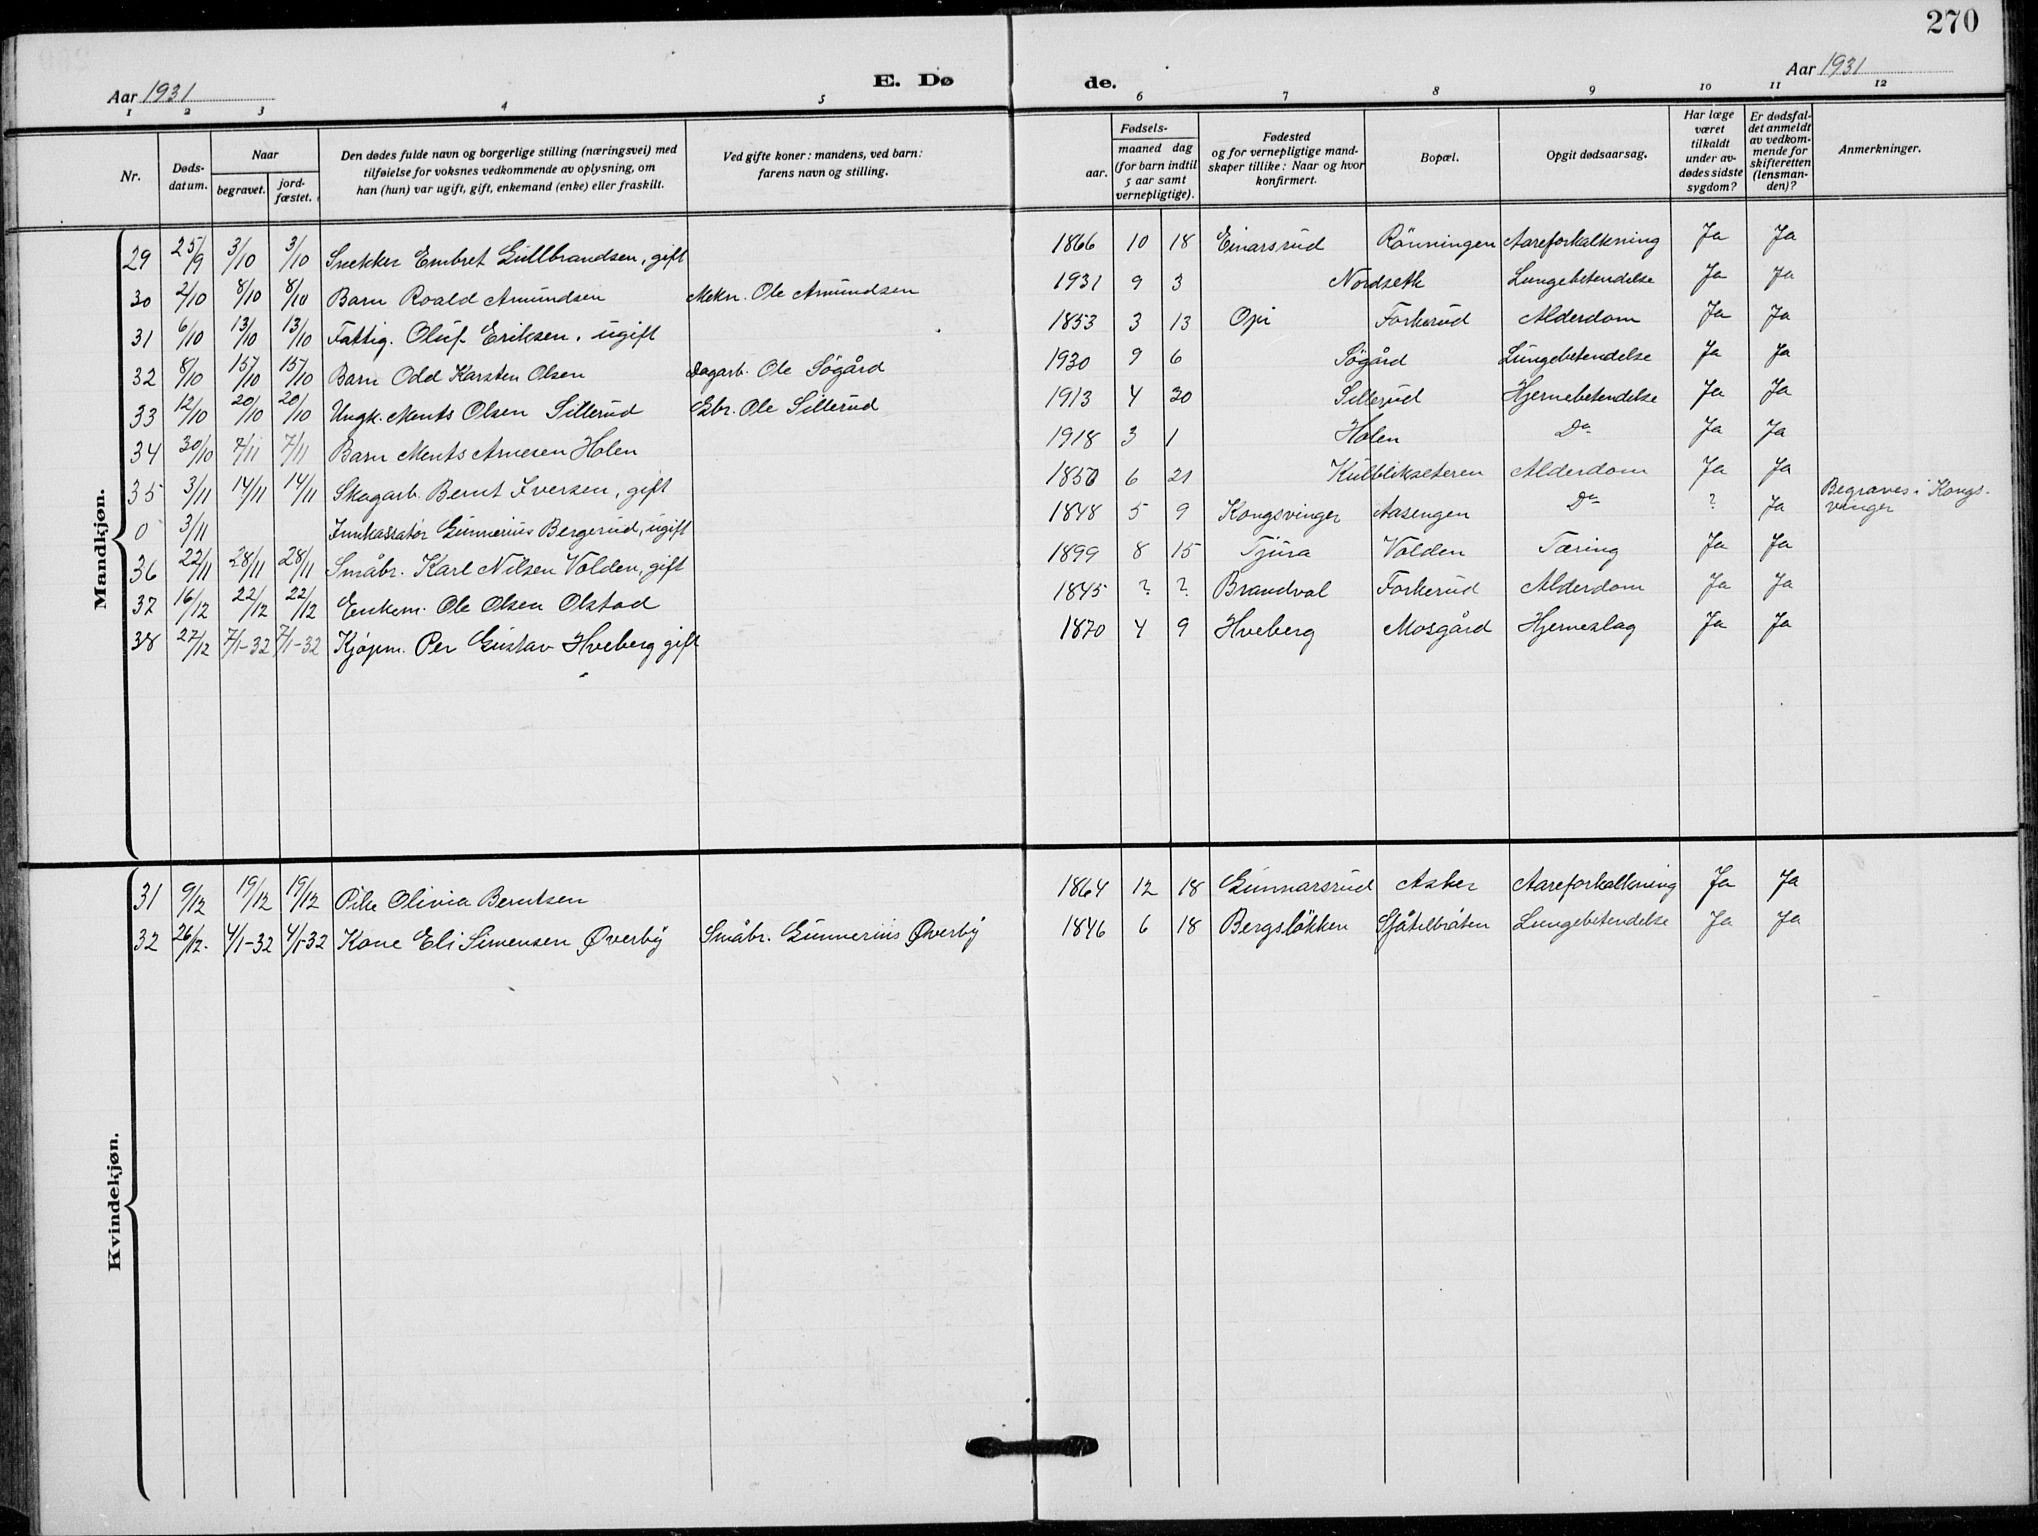 270
Aar 1931
E. Dø de.
Aar 1931
1 2 3 4 5 6 7 8 9 10 11 12
Nr.
Døds-
datum.
Naar
begravet.
jord-
fæstet.
Den dødes fulde navn og borgerlige stilling (næringsvei) med
tilføielse for voksnes vedkommende av oplysning, om
han (hun) var ugift, gift, enkemand (enke) eller fraskilt.
Ved gifte koner: mandens, ved barn:
farens navn og stilling.
Fødsels-
aar.
maaned dag
(for barn indtil
5 aar samt
vernepligtige).
Fødested
og for vernepligtige mand-
skaper tillike: Naar og hvor
konfirmert.
Bopæl.
Opgit dødsaarsag.
Har læge
været
tilkaldt
under av-
dødes sidste
sygdom?
Er dødsfal-
det anmeldt
av vedkom-
mende for
skifteretten
(lensman-
den)?
Anmerkninger.
Mandkjøn.
29 25/9 3/10 3/10 Snekker Embret Gullbrandsen, gift 1866 10 18 Einarsrud Rönningen Aareforkalkning Ja Ja
30 2/10 8/10 8/10 Barn Roald Amundsen Mekn. Ole Amundsen 1931 9 3 Nordseth Lungebetendelse Ja Ja
31 6/10 13/10 13/10 Fattig. Oluf Eriksen, ugift 1853 3 13 Opi Forkerud Alderdom Ja Ja
32 8/10 15/10 15/10 Barn Odd Karsten Olsen Dagarb. Ole Sögård 1930 9 6 Sögård Lungebetendelse Ja Ja
33 12/10 20/10 20/10 Ungk. Ments Olsen Sillerud Gbr. Ole Sillerud 1913 4 30 Sillerud Hjernebetendelse Ja Ja
34 30/10 7/11 7/11 Barn Ments Arnesen Holen 1918 3 1 Holen Do Ja Ja
35 3/11 14/11 14/11 Skogarb. Bernt Iversen, gift 1850 6 21 Kulblikseteren Alderdom Ja Ja
0 3/11 Innkassatör Gunnerius Bergerud, ugift 1848 5 9 Kongsvinger Aasengen Do ? Ja Begraves i Kongs-
vinger
36 22/11 28/11 28/11 Småbr. Karl Nilsen Volden, gift 1899 8 15 Tjura Volden Tæring Ja Ja
37 16/12 22/12 22/12 Enkem. Ole Olsen Olstad 1845 ? ? Brandval Forkerud Alderdom Ja Ja
38 27/12 7/1-32 7/1-32 Kjøpm. Per Gustav Hveberg gift 1870 4 9 Hveberg Mosgård Hjerneslag Ja Ja
Kvindekjøn.
31 9/12 19/12 19/12 Pike Olivia Berntsen 1864 12 18 Gunnarsrud Asker Aareforkalkning Ja Ja
32 26/12. 4/1-32 4/1-32 Kone Eli Simensen Øverby Småbr. Gunnerius Øverby 1846 6 18 Bergslökken Lungebetendelse Ja Ja